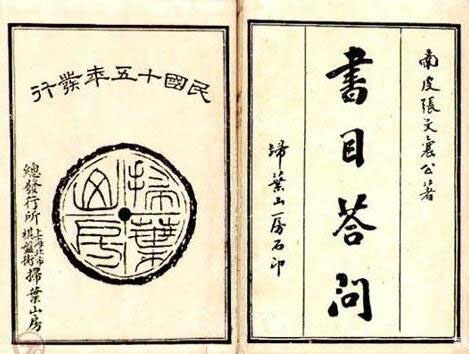 南皮張文襄公著
書目答問
埽葉山房石印
民國十五年發行
掃葉
山房
總發行所
上海北市
棋盤街
掃葉山房